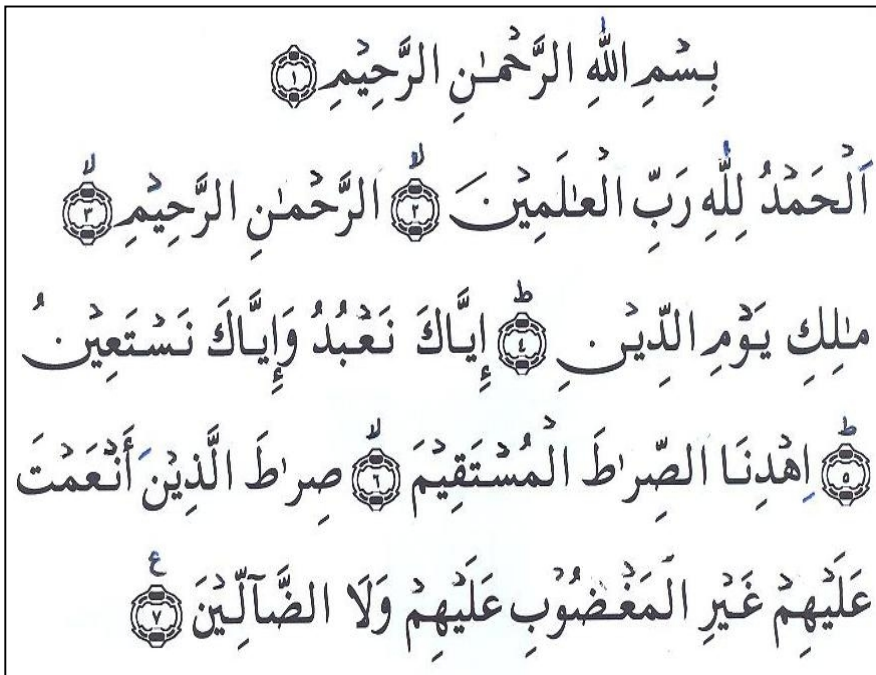 بِسْمِ اللّٰهِ الرَّحْمٰنِ الرَّحِيْمِ ﴿١﴾
اَلْحَمْدُ لِلّٰهِ رَبِّ الْعٰلَمِيْنَ ۙ﴿٢﴾ الرَّحْمٰنِ الرَّحِيْمِ ۙ﴿٣﴾
مٰلِكِ يَوْمِ الدِّيْنِ ؕ﴿٤﴾ إِيَّاكَ نَعْبُدُ وَإِيَّاكَ نَسْتَعِيْنُ
ؕ﴿٥﴾ اِهْدِنَا الصِّرٰطَ الْمُسْتَقِيْمَ ۙ﴿٦﴾ صِرٰطَ الَّذِيْنَ أَنْعَمْتَ
عَلَيْهِمْ غَيْرِ الْمَغْضُوْبِ عَلَيْهِمْ وَلَا الضَّآلِّيْنَ ﴿٧﴾ ع